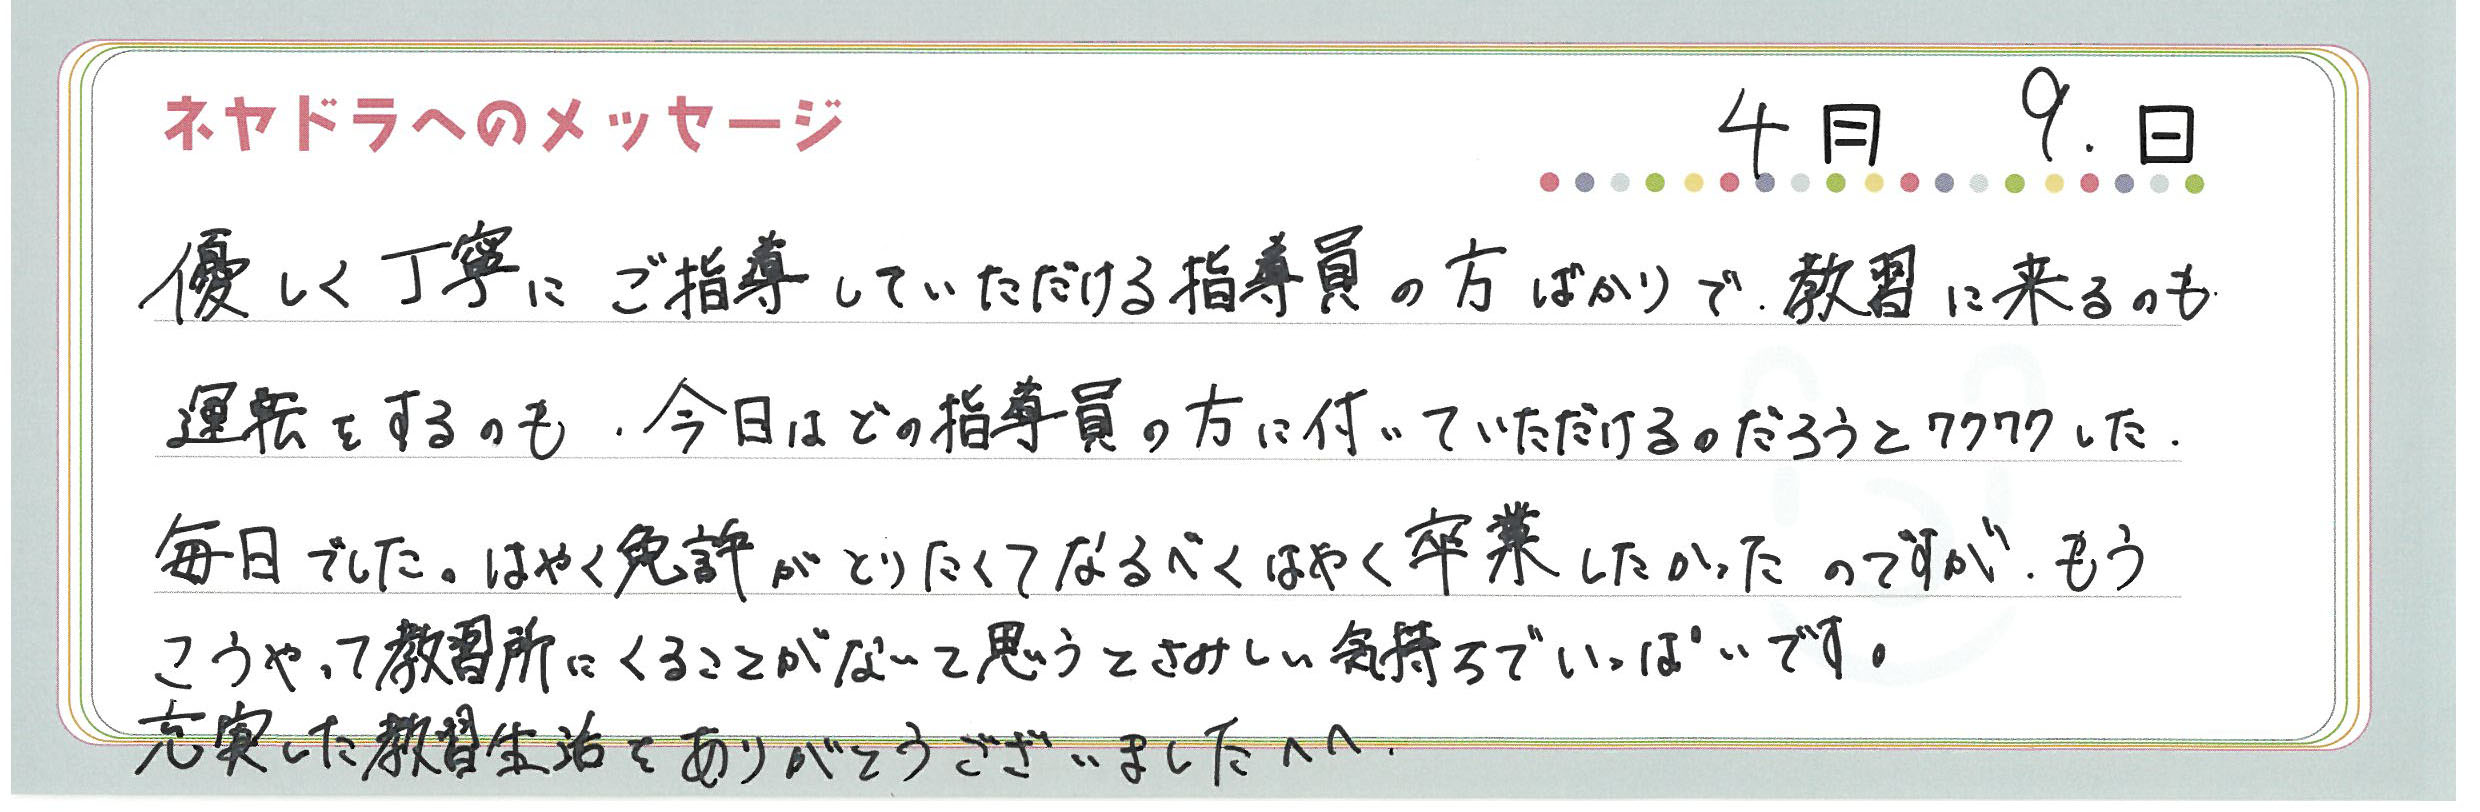 ネヤドラへのメッセージ
4月 9.日
優しく丁寧にご指導していただける指導員の方ばかりで、教習に来るのも
運転をするのも、今日はどの指導員の方に付いていただけるのだろうとワクワクした、
毎日でした。はやく免許がとりたくてなるべくはやく卒業したかったのですが、もう
こうやって教習所にくることがないって思うとさみしい気持ちでいっぱいです。
充実した教習生活をありがとうございました^^.